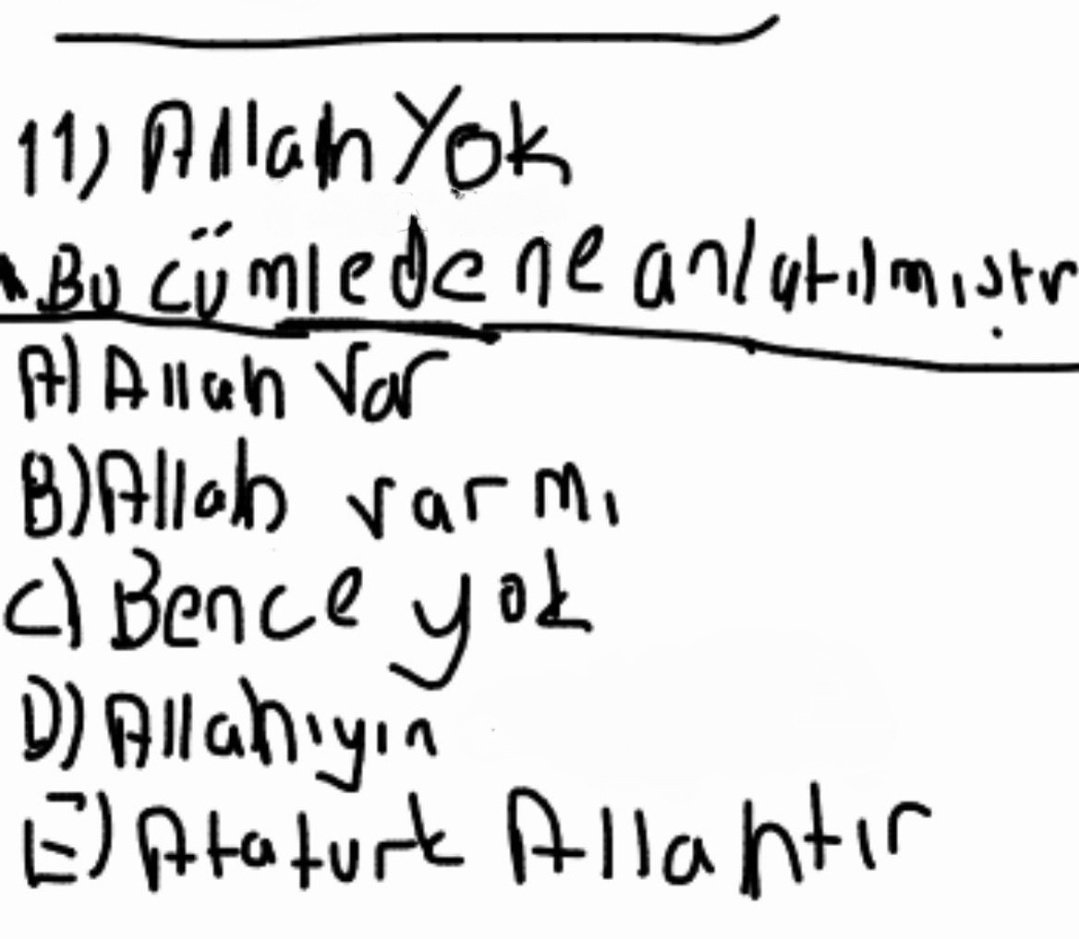 11) Allah Yok
Bu cümlede ne anlatılmıştr
A) Allah Var
B) Allah var mı
C) Bence yok
D) Allahıyın
E) Ataturk Allahtır